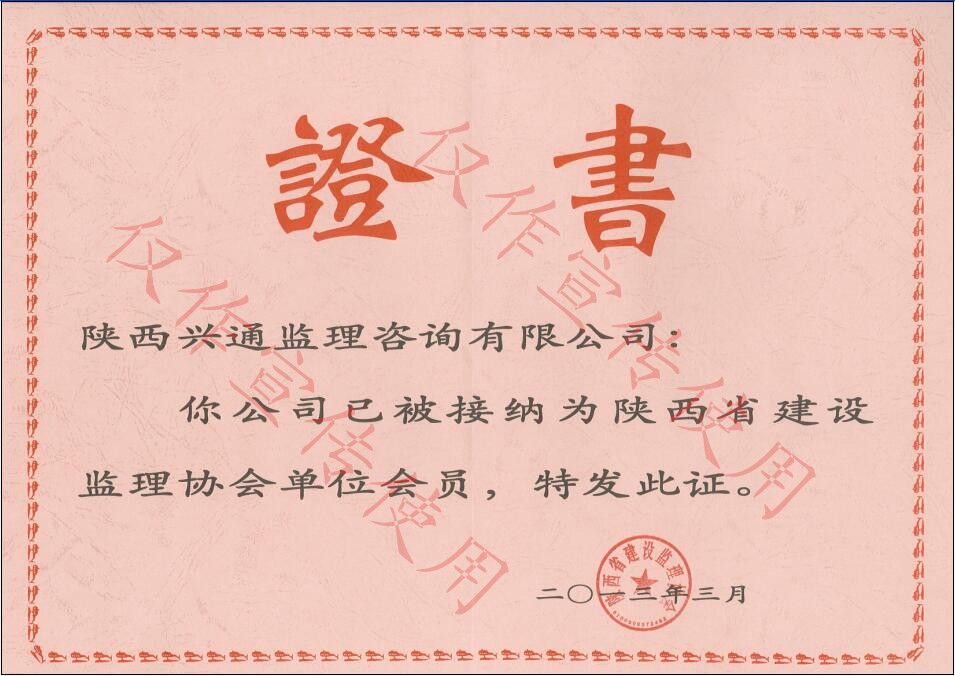 證書
陕西兴通监理咨询有限公司：
你公司已被接纳为陕西省建设
监理协会单位会员，特发此证。
二〇一三年三月
陕西省建设监理协会
仅作宣传使用
仅作宣传使用